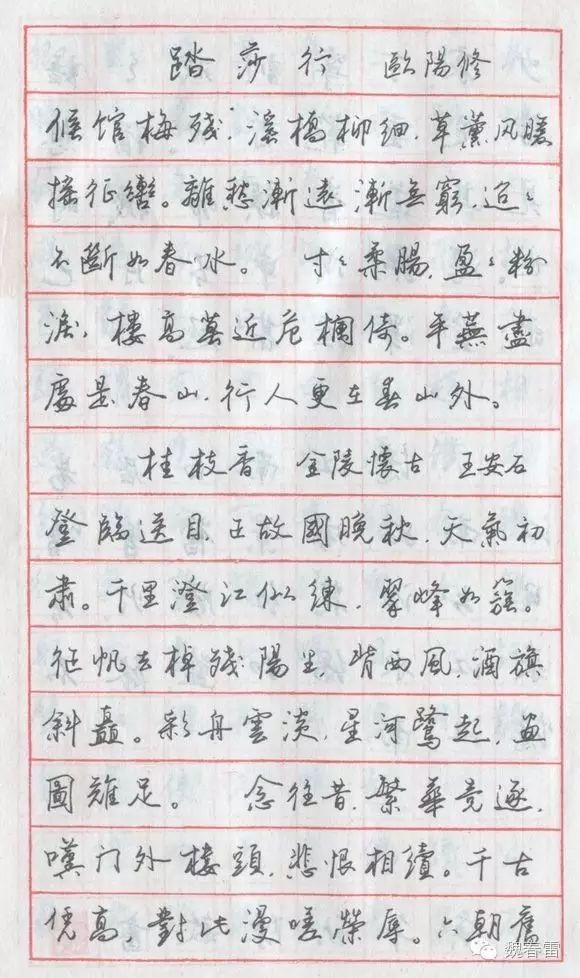 踏莎行 歐陽修
候馆梅残,溪橋柳細,草薰风暖
摇征轡。離愁漸遠漸無窮,迢〻
不斷如春水。 寸〻柔腸,盈〻粉
淚,樓高莫近危欄倚。平蕪盡
處是春山,行人更在春山外。
桂枝香 金陵懷古 王安石
登臨送目,正故國晚秋,天氣初
肃。千里澄江似練,翠峰如簇。
征帆去棹殘陽里,背西風,酒旗
斜矗。彩舟雲淡,星河鹭起,画
圖難足。 念往昔,繁華竞逐,
嘆门外樓頭,悲恨相續。千古
凭高,對此漫嗟榮辱。六朝舊
魏春雷